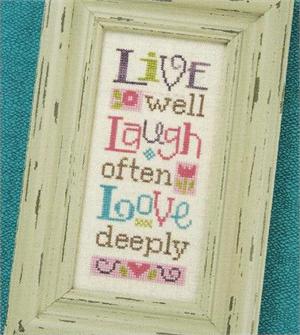 LiVE
well
Laugh
often
Love
deeply